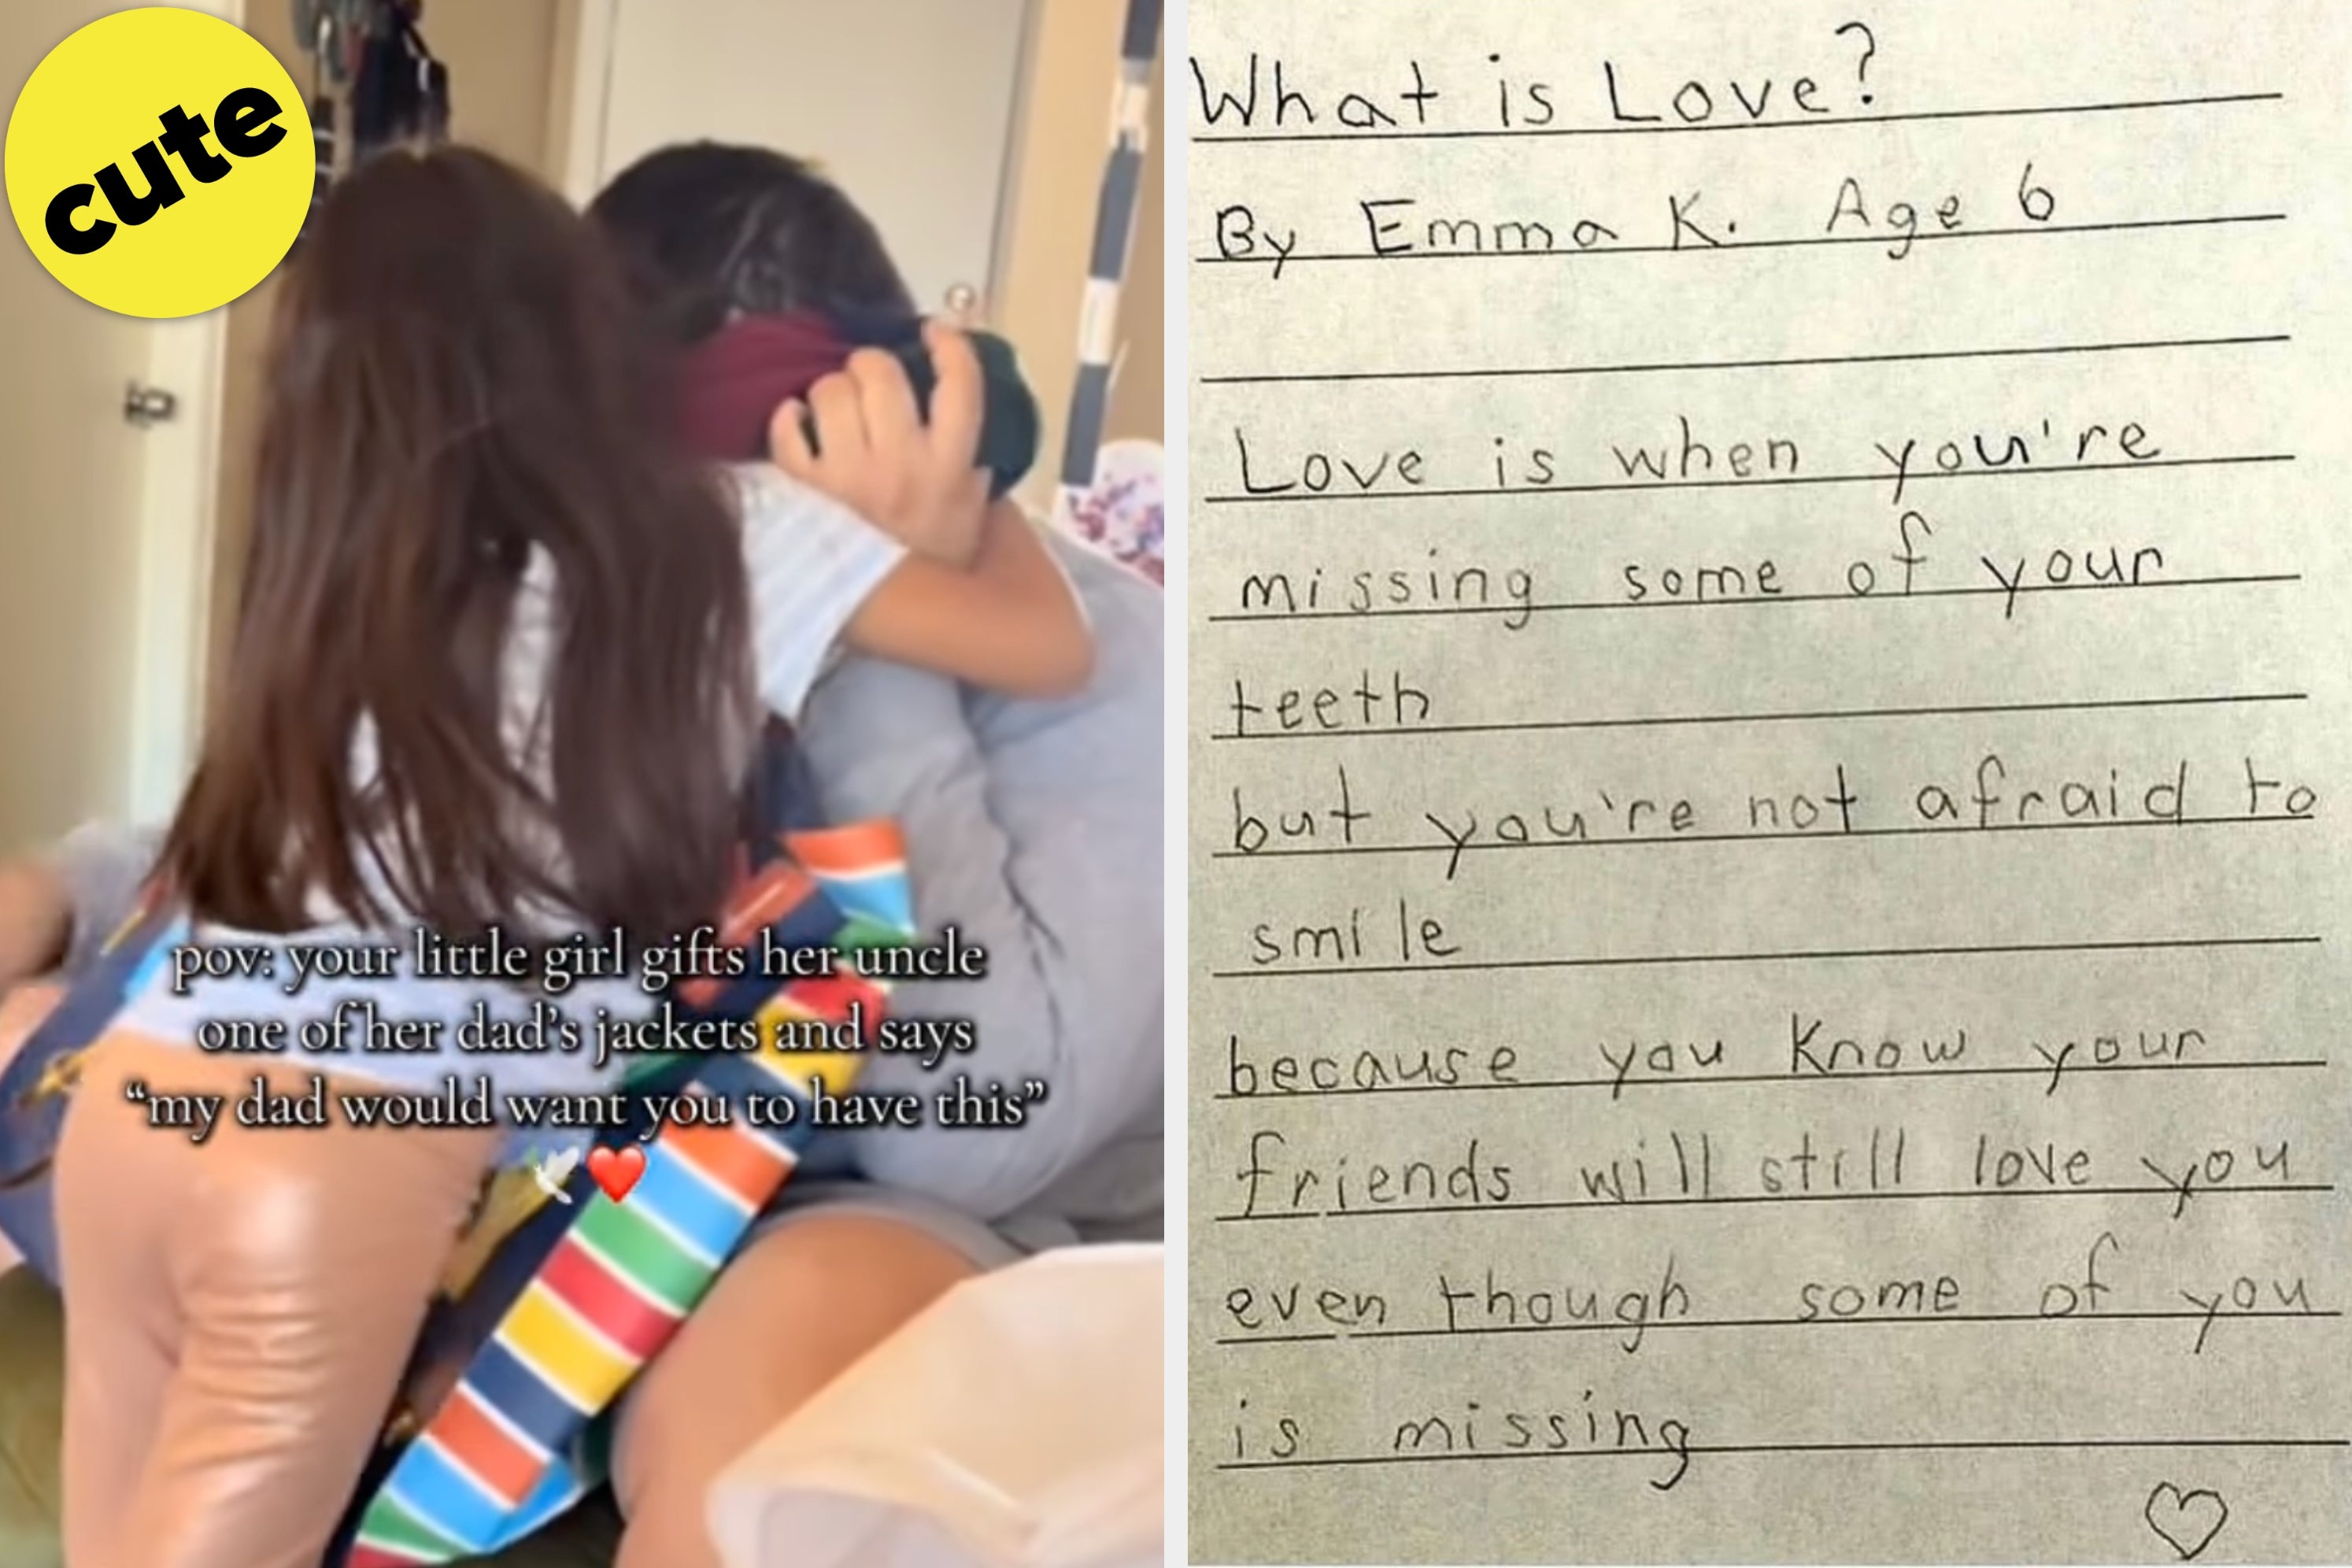 cute
pov: your little girl gifts her uncle
one of her dad's jackets and says
“my dad would want you to have this”
🕊️❤️
What is Love?
By Emma K. Age 6
Love is when you're
missing some of your
teeth
but you're not afraid to
smile
because you know your
friends will still love you
even though some of you
is missing
♡